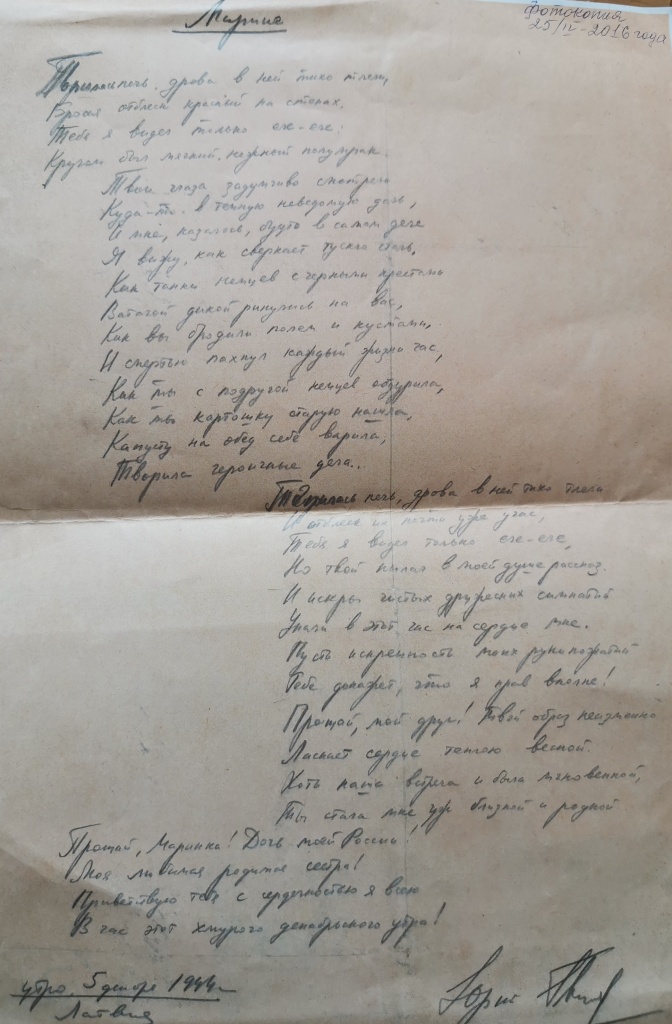 Марине
Фотокопия
25/IV-2016 года
Топилась печь, дрова в ней тихо тлели,
Бросая отблеск красный на стенах.
Тебя я видел только еле-еле:
Кругом был мягкий, нежный полумрак.
Твои глаза задумчиво смотрели
Куда-то в темную неведомую даль,
И мне, казалось, будто в самом деле
Я вижу, как сверкает тускло сталь,
Как танки немцев с черными крестами
Ватагой дикой ринулись на вас,
Как вы бродили полем и кустами,
И смертью пахнул каждый жизни час,
Как ты с подругой немцев обдурила,
Как ты картошку старую нашла,
Капусту на обед себе варила,
Творила героичные дела..
Топилась печь, дрова в ней тихо тлели
И отблеск их почти уже угас,
Тебя я видел только еле-еле,
Но твой пылал в моей душе рассказ.
И искры чистых дружеских симпатий
Упали в этот час на сердце мне.
Пусть искренность моих рукопожатий
Тебе докажет, что я прав вполне!
Прощай, мой друг! Твой образ неизменно
Ласкает сердце теплою весной.
Хоть наша встреча и была мгновенной,
Ты стала мне уж близкой и родной
Прощай, Маринка! Дочь моей России!
Моя любимая родимая сестра!
Приветствую тебя с сердечностью я всею
В час этот хмурого декабрьского утра!
утро, 5 декабря 1944 г.
Латвия
Юрий